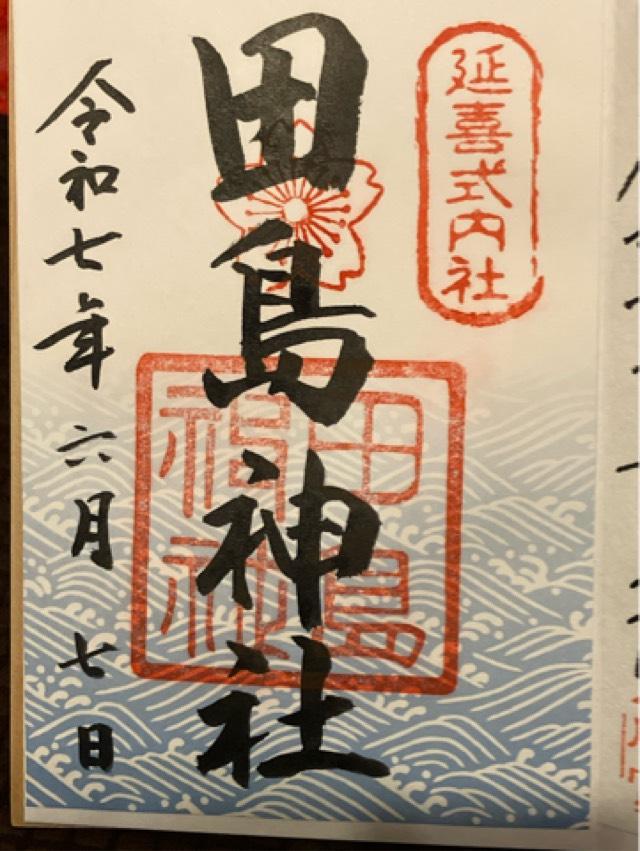 延喜式内社
田島神社
田島神社
令和七年六月七日